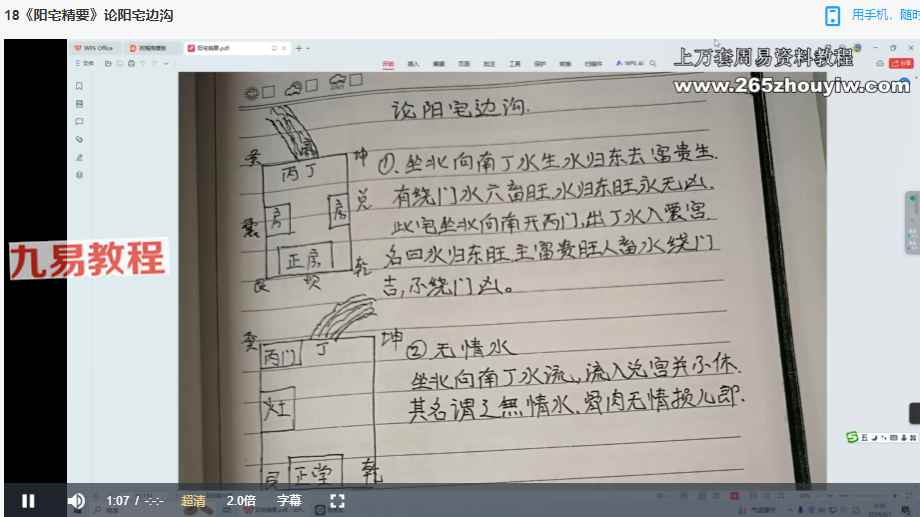 18《阳宅精要》论阳宅边沟
用手机，随时
WPS Office
阳宅精要.pdf
文件
开始
插入
编辑
页面
批注
工具
保护
转换
WPS AI
上万套周易资料教程
www.265zhouyiw.com
九易教程
论阳宅边沟.
巽
坤
丙丁
兑
震
房
房
正房
艮
坝
乾
①.坐北向南丁水生水归东去富贵生.
有绕门水六畜旺.水归东旺永无凶.
此宅坐北向南开丙门,出丁水入震宫
名曰水归东旺.主富贵旺人畜水绕门
吉,不绕门凶。
巽
坤
丙门
丁
灶
艮
正堂
乾
②无情水
坐北向南丁水流,流入兑宫并不休.
其名谓之無情水.骨肉无情损儿郎.
1:07 / -:-:-
超清
2.0倍
字幕